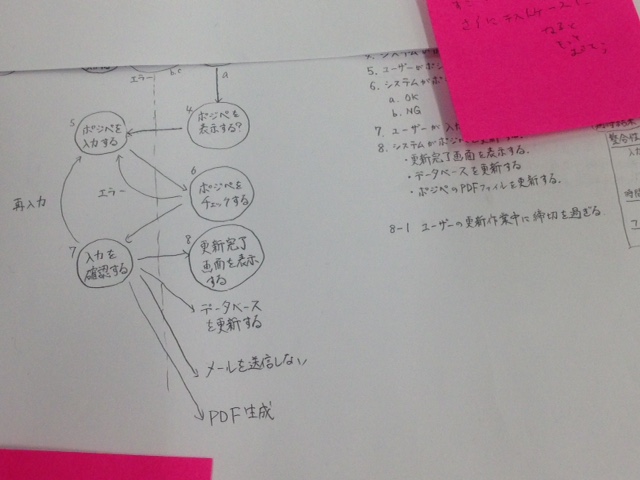 エラー
b.c
a
4
ポジペを
表示する?
5
ポジペを
入力する
エラー
6
ポジペを
チェックする
再入力
7
入力を
確認する
8
更新完了
画面を表示
する
データベース
を更新する
メールを送信しない
PDF生成
5. ユーザーがポジ
6. システムがポジ
a. OK
b. NG
7. ユーザーが入
8. システムがポジペを更新する.
・更新完了画面を表示する.
・データベースを更新する
・ポジペのPDFファイルを更新する.
8-1 ユーザーの更新作業中に締切を過ぎる
整合性